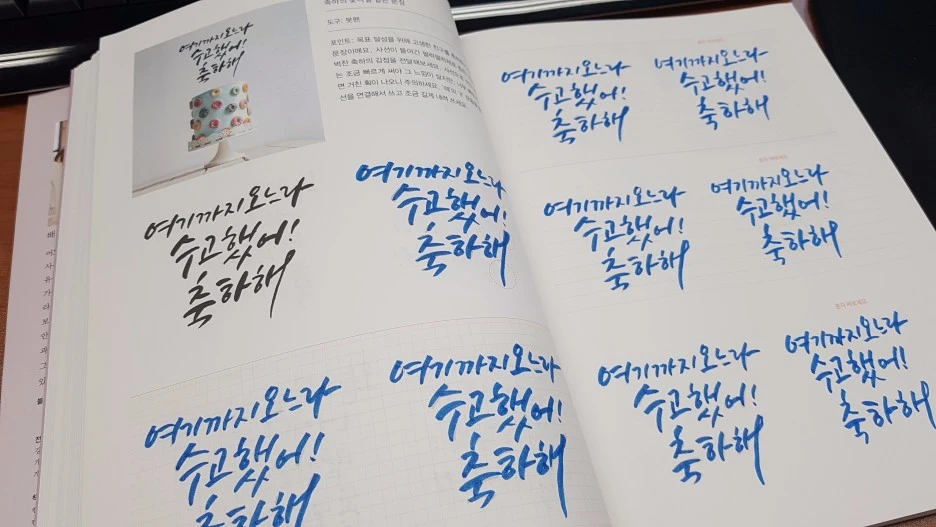 여기까지오느라
수고했어!
축하해
도구: 붓펜
포인트: 목표 달성을 위해 고생한 친구를
문장이에요. 사선이 들어간
벅찬 축하의 감정을 전달해보세요.
는 조금 빠르게 써야 그 느낌이 살지만
면 거친 획이 나오니 주의하세요.
선을 연결해서 쓰고 조금 길게 내려 쓰세요.
여기까지오느라
수고했어!
축하해
여기까지오느라
수고했어!
축하해
여기까지오느라
수고했어!
축하해
여기까지오느라
수고했어!
축하해
여기까지오느라
수고했어!
축하해
여기까지오느라
수고했어!
축하해
여기까지오느라
수고했어!
축하해
여기까지오느라
수고했어!
축하해
여기까지오느라
수고했어!
축하해
여기까지오느라
수고했어!
축하해